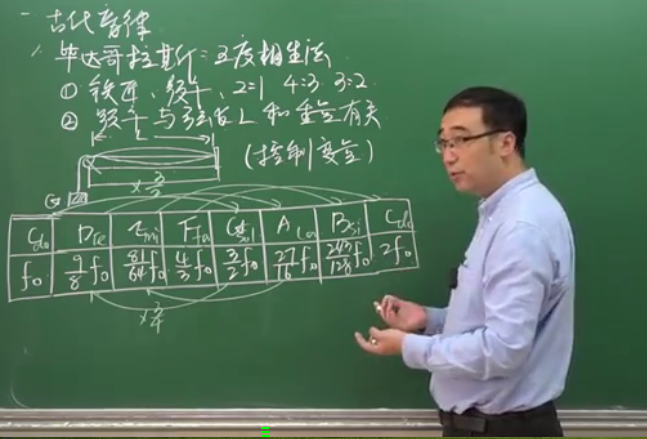 一 古代音律
1. 毕达哥拉斯:五度相生法
① 铁匠、频率、2:1 4:3 3:2
② 频率与弦长L和重量有关
L
(控制变量)
G
×3/2
C do D re E mi F fa G sol A la B si C do
f₀ 9/8 f₀ 81/64 f₀ 4/3 f₀ 3/2 f₀ 27/16 f₀ 243/128 f₀ 2f₀
×3/4